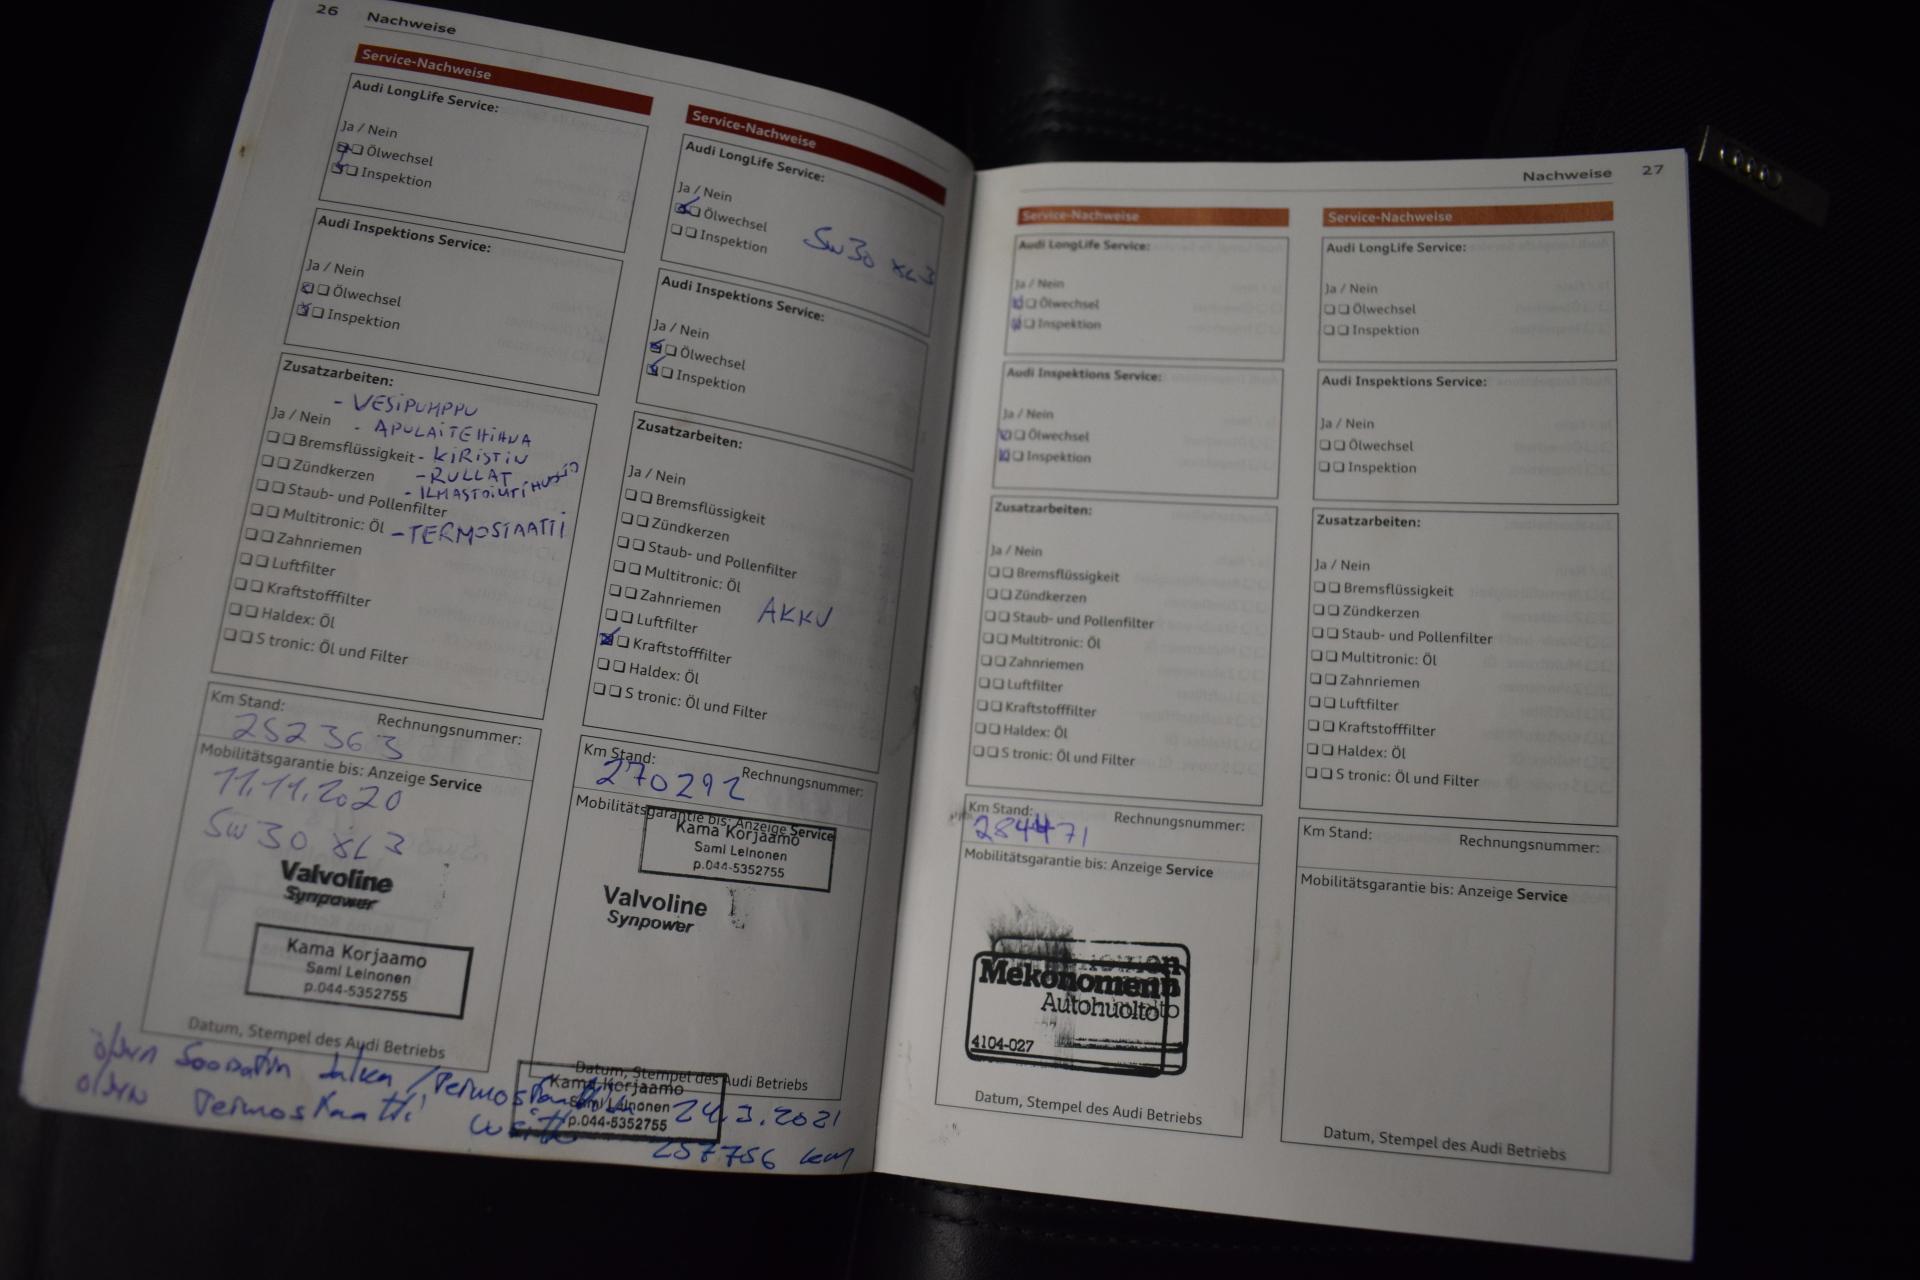 26 Nachweise
Service-Nachweise
Audi LongLife Service:
Ja / Nein
Ölwechsel
Inspektion
Audi Inspektions Service:
Ja / Nein
Ölwechsel
Inspektion
Zusatzarbeiten:
- VESIPUMPPU
- APULAITEHIHNA
Ja / Nein
- KIRISTIN
Bremsflüssigkeit
- RULLAT
Zündkerzen
- ILMASTOINTIHUOLTO
Staub- und Pollenfilter
Multitronic: Öl
- TERMOSTAATTI
Zahnriemen
Luftfilter
Kraftstofffilter
Haldex: Öl
S tronic: Öl und Filter
Km Stand:
Rechnungsnummer:
252363
Mobilitätsgarantie bis: Anzeige Service
11.11.2020
5W30 XL3
Valvoline
Synpower
Kama Korjaamo
Sami Leinonen
p.044-5352755
Datum, Stempel des Audi Betriebs
Service-Nachweise
Audi LongLife Service:
Ja / Nein
Ölwechsel
Inspektion
5W30 XL3
Audi Inspektions Service:
Ja / Nein
Ölwechsel
Inspektion
Zusatzarbeiten:
Ja / Nein
Bremsflüssigkeit
Zündkerzen
Staub- und Pollenfilter
Multitronic: Öl
Zahnriemen
AKKU
Luftfilter
Kraftstofffilter
Haldex: Öl
S tronic: Öl und Filter
Km Stand:
Rechnungsnummer:
270292
Mobilitätsgarantie bis: Anzeige Service
Kama Korjaamo
Sami Leinonen
p.044-5352755
Valvoline
Synpower
Datum, Stempel des Audi Betriebs
Kama Korjaamo
Sami Leinonen
p.044-5352755
öljyn suodatin jalka / termostaatin 24.3.2021
öljyn termostaatti 257756 km
Nachweise 27
Service-Nachweise
Audi LongLife Service:
Ja / Nein
Ölwechsel
Inspektion
Audi Inspektions Service:
Ja / Nein
Ölwechsel
Inspektion
Zusatzarbeiten:
Ja / Nein
Bremsflüssigkeit
Zündkerzen
Staub- und Pollenfilter
Multitronic: Öl
Zahnriemen
Luftfilter
Kraftstofffilter
Haldex: Öl
S tronic: Öl und Filter
Km Stand:
Rechnungsnummer:
284471
Mobilitätsgarantie bis: Anzeige Service
Mekonomen
Autohuolto
4104-027
Datum, Stempel des Audi Betriebs
Service-Nachweise
Audi LongLife Service:
Ja / Nein
Ölwechsel
Inspektion
Audi Inspektions Service:
Ja / Nein
Ölwechsel
Inspektion
Zusatzarbeiten:
Ja / Nein
Bremsflüssigkeit
Zündkerzen
Staub- und Pollenfilter
Multitronic: Öl
Zahnriemen
Luftfilter
Kraftstofffilter
Haldex: Öl
S tronic: Öl und Filter
Km Stand:
Rechnungsnummer:
Mobilitätsgarantie bis: Anzeige Service
Datum, Stempel des Audi Betriebs